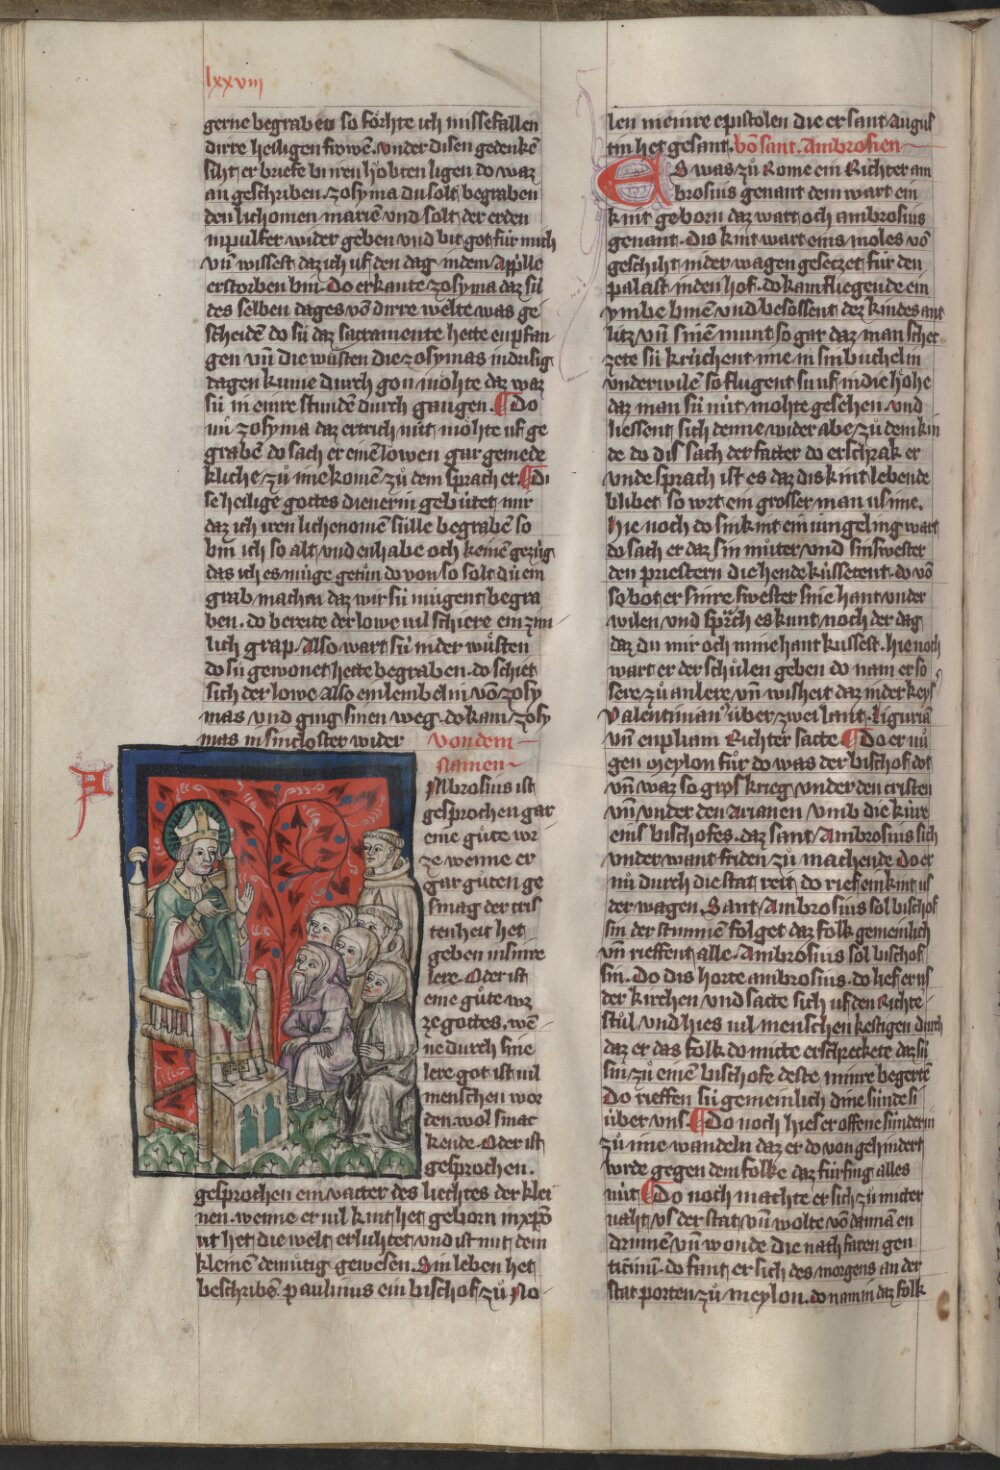 lxxviii
gerne begraben so förhte ich missefallen
dirre heiligen frowē. under disen gedenkē
siht er briefe bi iren höbten ligen do waz
an geschriben. zosyma du solt begraben
den lichomen mariē vnd solt der erden
inpulfer wider geben vnd bit got für mich
vn̄ wissest daz ich uf den dag indem Applle
erstorben bin. Do erkante zosyma daz sü
des selben dages vō dirre welte was ge
scheidē do sü daz sacramente hette enpfan
gen vn̄ die wüsten die zosymas indrisig
dagen kume durch gon möhte daz waz
sü in einre stundē durch gangen. Do
nů zosyma daz ertrich nüt möhte uf ge
grabē do sach er einē lowen gar gemede
kliche zů ime komē zů dem sprach er. Di
se heilige gottes dienerin gebütet mir
daz ich iren lichenomē sülle begrabē so
bin ich so alt vnd enhabe och keinē gezüg
das ich es müge getůn do von so solt dů ein
grab machen daz wir sü mügent begra
ben. do bereite der lowe vil schiere ein zim
lich grap. Also wart sü inder wůsten
do sü gewonet hette begraben. do schiet
sich der lowe Also ein lembelin vō zosy
mas vnd ging sinen weg. do kam zosy
mas in sin closter wider
von dem
namen
A
Ambrosius ist
gesprochen gar
eine gůte wr
ze wenne er
gar gůten ge
smag der cris
tenheit het
geben in sinre
lere. Oder ist
eine gůte wr
ze gottes. wē
ne durch sine
lere got ist vil
menschen wor
den wol smac
kende. Oder ist
gesprochen.
gesprochen ein vatter des liechtes der klei
nen. wenne er vil kint het geborn in xpō
vt het die welt erluhtet vnd ist mit dem
kleinē demütig gewesen. Sin leben het
beschribē paulinus ein bischof zů No
len in einre epistolen die er sant Augus
tin het gesant. vō sant Ambrosien
ES was zů Rome ein Richter am
brosius genant dem wart ein
kint geborn daz wart och ambrosius
genant. Dis kint wart eins moles vō
geschiht inder wagen gesetzet für den
palast inden hof. do kam fliegende ein
ymbe binē vnd besossent dez kindes ant
litz vn̄ sinē munt so gar daz man schet
zete sü krüchent ime in sin buchelin
vnderwilē so flugent sü uf in die höhe
daz man sü nüt mohte gesehen. vnd
liessent sich denne wider abe zů dem kin
de do dis sach der fatter do erschrak er
vnde sprach ist es daz dis kint lebende
blibet so wrt ein grosser man us ime.
Hie noch do sin kint ein iungeling wart
do sach er daz sin můter vnd sin swester
den priestern die hende küssetent. do vō
so bot er sinre swester sine hant vnder
wilen vnd sprach es kunt noch der dag
daz du mir och mine hant küssest. hie noch
wart er der schůlen geben do nam er so
sere zů an lere vn̄ wisheit daz in der keys
Valentinian' über zwei lant. Liguriā
vn̄ enpliam Richter satte Do er nů
gen Meylon für do was der bischof dot
vn̄ waz so gros krieg vnder den cristen
vn̄ vnder den Arianen vmb die küre
eins bischofes. daz sant Ambrosius sich
vnder want friden zů machende Do er
nů durch die stat reit do rief ein kint us
der wagen. Sant Ambrosius sol bischof
sin der stimmē folget daz folk gemeinlich
vn̄ rieffent alle. Ambrosius sol bischof
sin. Do dis horte ambrosius. do lief er us
der kirchen vnd satte sich uf den Richte
stůl vnd hies vil menschen kestigen durch
daz er das folk do mitte erschreckete daz sü
sin zů einē bischofe deste minre begertē
Do rieffen sü gemeinlich dine sünde si
über vns. Do noch hies er offene sünderin
zů ime wandeln daz er do von gehindert
wrde gegen dem folke daz fürfing alles
nüt Do noch machte er sich zů mitter
naht vs der stat vn̄ wolte vō dannā en
drinnē vn̄ wonde die naht faren gen
ticinū. do fant er sich des morgens an der
stat porten zů meylon. do nam in daz folk